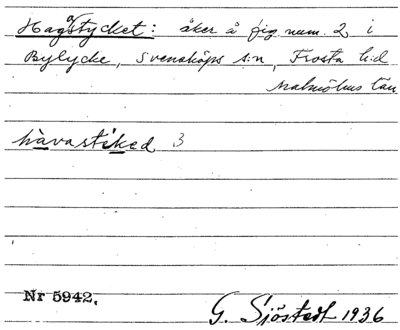 Hagstycket: åker å fig. num. 2 i
Bylycke, Svensköps s:n, Frosta h:d
Malmöhus län
hàvastiked 3
Nr 5942.
G. Sjöstedt 1936